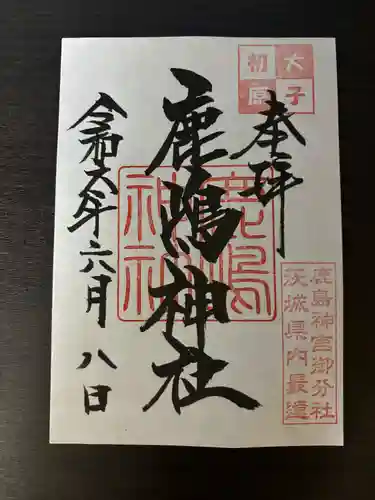 大子
初原
奉拝
鹿嶋神社
鹿嶋
神社
令和六年六月八日
鹿島神宮御分社
茨城県内最遠